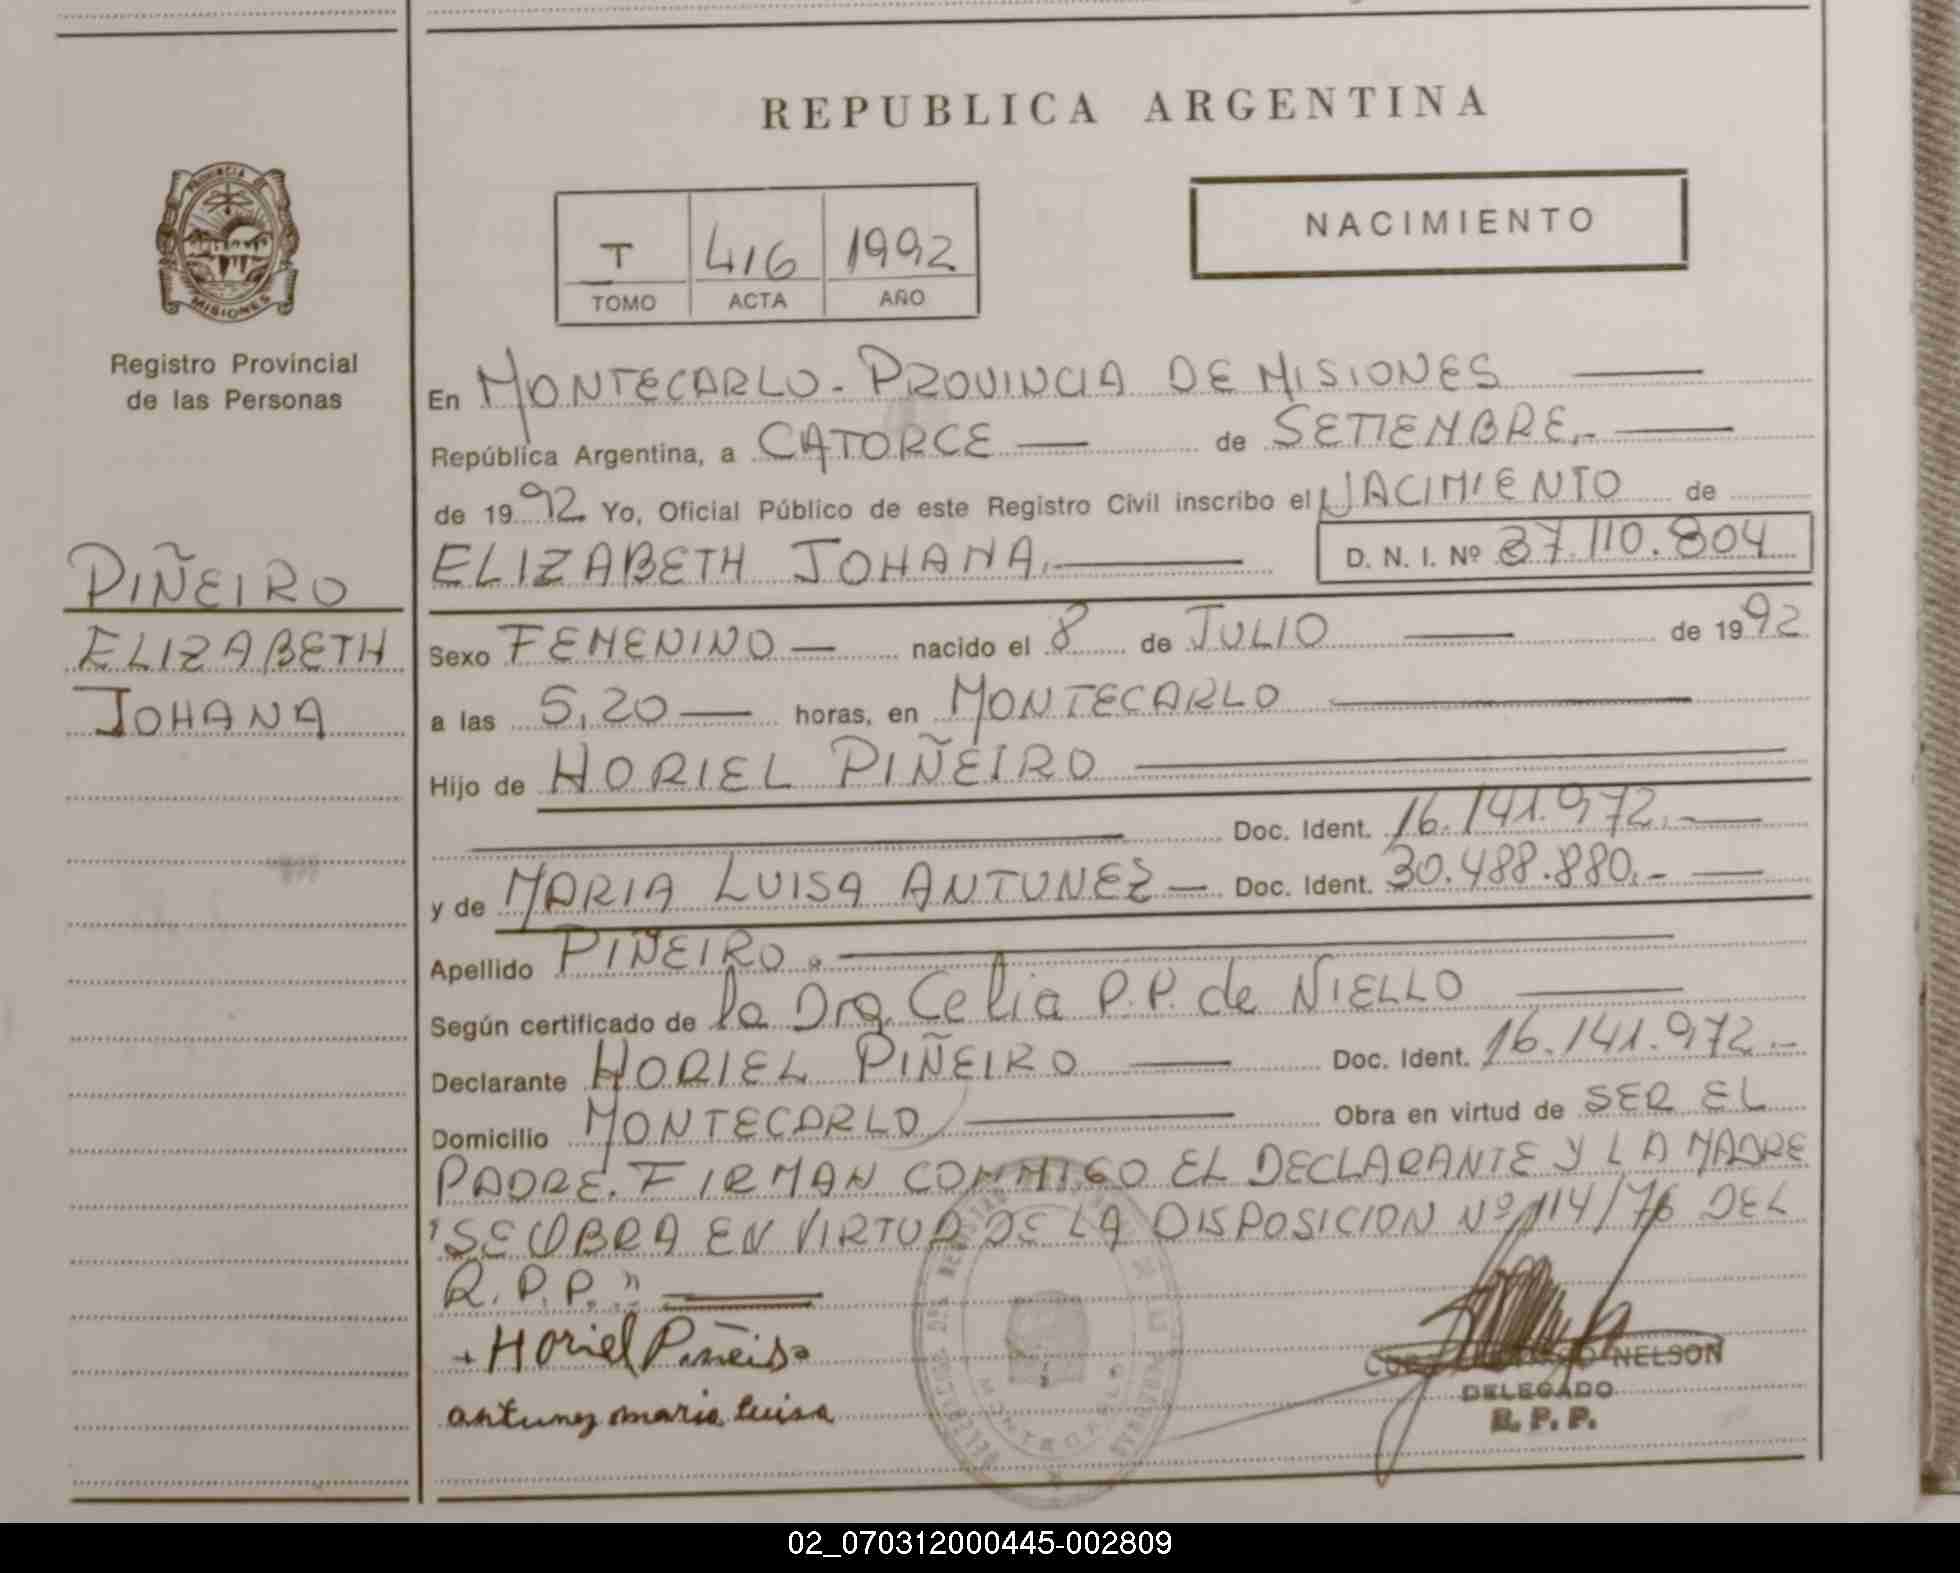 REPUBLICA ARGENTINA
PROVINCIA DE
MISIONES
Registro Provincial
de las Personas
T 416 1992
TOMO ACTA AÑO
NACIMIENTO
En MONTECARLO - PROVINCIA DE MISIONES
República Argentina, a CATORCE de SETIEMBRE.-
de 1992 Yo, Oficial Público de este Registro Civil inscribo el NACIMIENTO de
ELIZABETH JOHANA.- D. N. I. Nº 37.110.804
PIÑEIRO
ELIZABETH
JOHANA
Sexo FEMENINO nacido el 8 de JULIO de 1992
a las 5,20 horas, en MONTECARLO
Hijo de HORIEL PIÑEIRO
Doc. Ident. 16.141.972.-
y de MARIA LUISA ANTUNEZ Doc. Ident. 30.488.880.-
Apellido PIÑEIRO.
Según certificado de la Dra. Celia P.P. de NIELLO
Declarante HORIEL PIÑEIRO Doc. Ident. 16.141.972.-
Domicilio MONTECARLO Obra en virtud de SER EL
PADRE. FIRMAN CONMIGO EL DECLARANTE Y LA MADRE
"SE OBRA EN VIRTUD DE LA DISPOSICION Nº 114/76 DEL
R.P.P."
Horiel Piñeiro
antunez maria luisa
MONTECARLO
NELSON
DELEGADO
R. P. P.
02_070312000445-002809